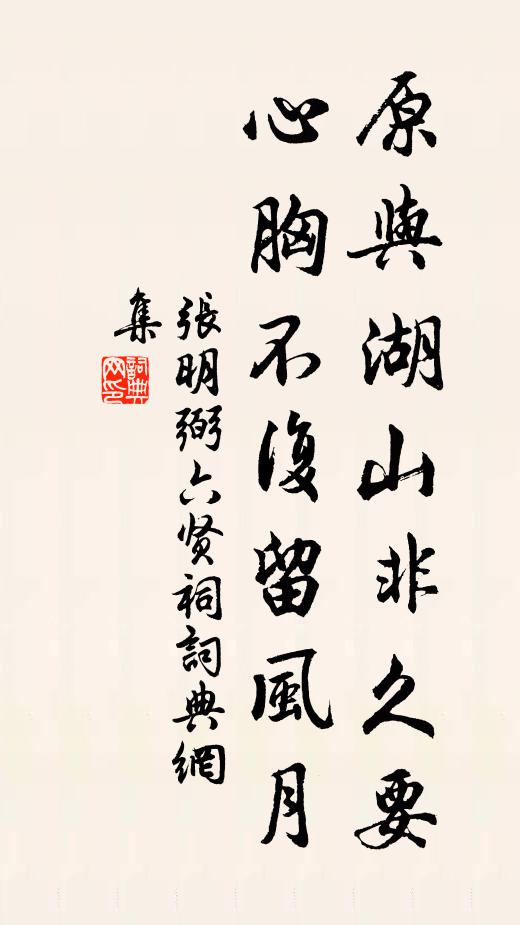 原與湖山非久要
心胸不復留風月
張明弼六贤祠詞典網
集
詞典
网印